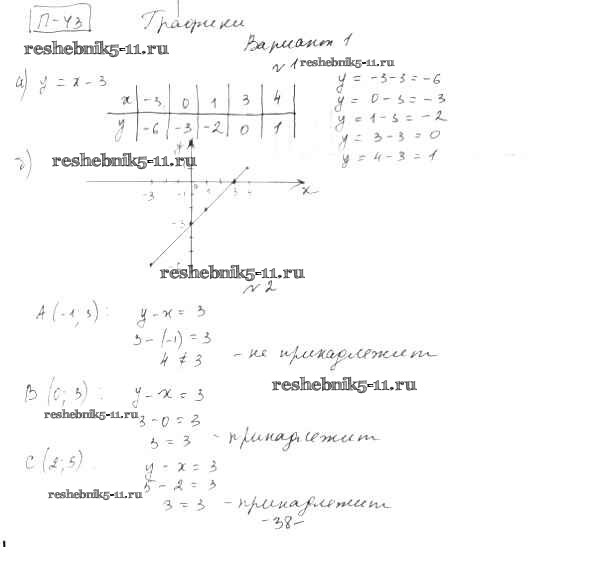 П-43 Графики
reshebnik5-11.ru
Вариант 1
№1 reshebnik5-11.ru
а) y = x - 3
x | -3 | 0 | 1 | 3 | 4
y | -6 | -3 | -2 | 0 | 1
y = -3-3 = -6
y = 0-3 = -3
y = 1-3 = -2
y = 3-3 = 0
y = 4-3 = 1
б) reshebnik5-11.ru
y
-3 -1 0 1 3 4 x
-3
reshebnik5-11.ru
№2
A (-1; 3): y - x = 3
3 - (-1) = 3
4 ≠ 3 - не принадлежит
reshebnik5-11.ru
B (0; 3): y - x = 3
reshebnik5-11.ru 3 - 0 = 3
3 = 3 - принадлежит
C (2; 5): y - x = 3
5 - 2 = 3
reshebnik5-11.ru
3 = 3 - принадлежит
-38-